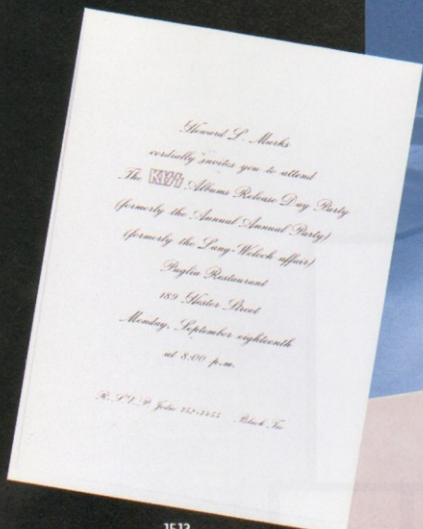 Howard L. Marks
cordially invites you to attend
The KISS Albums Release Day Party
(formerly the Annual Annual Party)
(formerly the Lang-Welock affair)
Puglia Restaurant
189 Hester Street
Monday, September eighteenth
at 8:00 p.m.
R.S.V.P. Jodie Black Tie
15.12